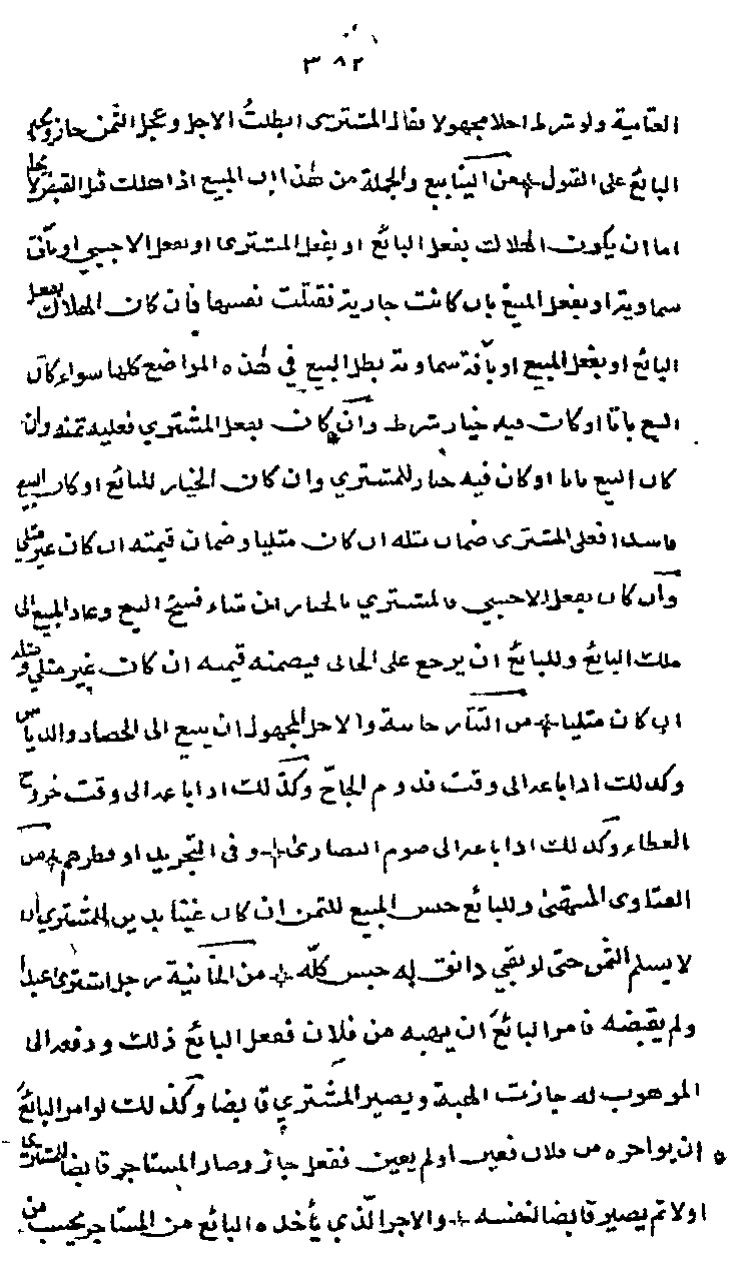 ٣٨٢
العتابية ولو شرط اجلا مجهولا فقال المشترى ابطلتُ الاجل وعجل الثمن جاز ويجبر
البائع على القبول من الينابيع والجملة من هذا ان المبيع اذا هلك قبل القبض لا يخلو
اما ان يكون الهلاك بفعل البائع او بفعل المشترى او بفعل الاجنبي او بآفة
سماوية او بفعل المبيع بان كانت جارية فقتلت نفسها فان كان الهلاك بفعل
البائع او بفعل المبيع او بآفة سماوية بطل البيع في هذه المواضع كلها سواء كان
البيع باتا او كان فيه خيار شرط وان كان بفعل المشتري فعليه ثمنه وان
كان البيع باتا او كان فيه خيار للمشتري وان كان الخيار للبائع او كان البيع
فاسدا فعلى المشترى ضمان مثله ان كان مثليا وضمان قيمته ان كان غير مثلي
وان كان بفعل الاجنبي فالمشتري بالخيار ان شاء فسخ البيع وعاد المبيع الى
ملك البائع وللبائع ان يرجع على الجاني فيضمنه قيمته ان كان غير مثلي ومثله
ان كان مثليا من والاجل المجهول ان يبيع الى الحصاد والدياس
وكذلك اذا باعه الى وقت قدوم الحاجّ وكذلك اذا باعه الى وقت خروج
العطاء وكذلك اذا باعه الى صوم النصارى وفى التجريد او فطرهم من
الفتاوى وللبائع حبس المبيع للثمن ان كان عينا بدين للمشتري ان
لا يسلم الثمن حتى لو بقي دانق له حبس كلّه من الخانية رجل اشترى عبدا
ولم يقبضه فامر البائع ان يهبه من فلان ففعل البائع ذلك ودفعه الى
الموهوب له جازت الهبة ويصير المشتري قابضا وكذلك لو امر البائع
ان يواجره من فلان فعين او لم يعين ففعل جاز وصار المستاجر قابضا للمشترى
اولا ثم يصير قابضا لنفسه والاجر الّذي يأخذه البائع من المستاجر يحسب من